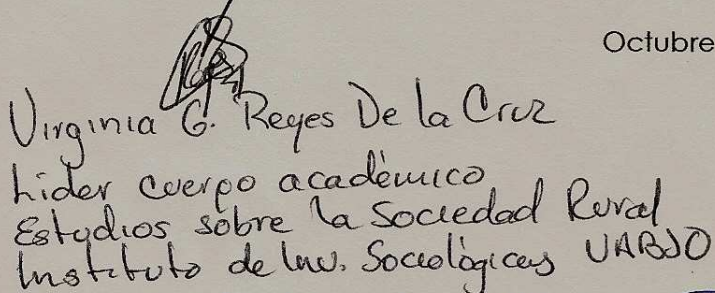 Octubre
Virginia G. Reyes De la Cruz
Lider cuerpo académico
Estudios sobre la Sociedad Rural
Instituto de Inv. Sociológicas UABJO